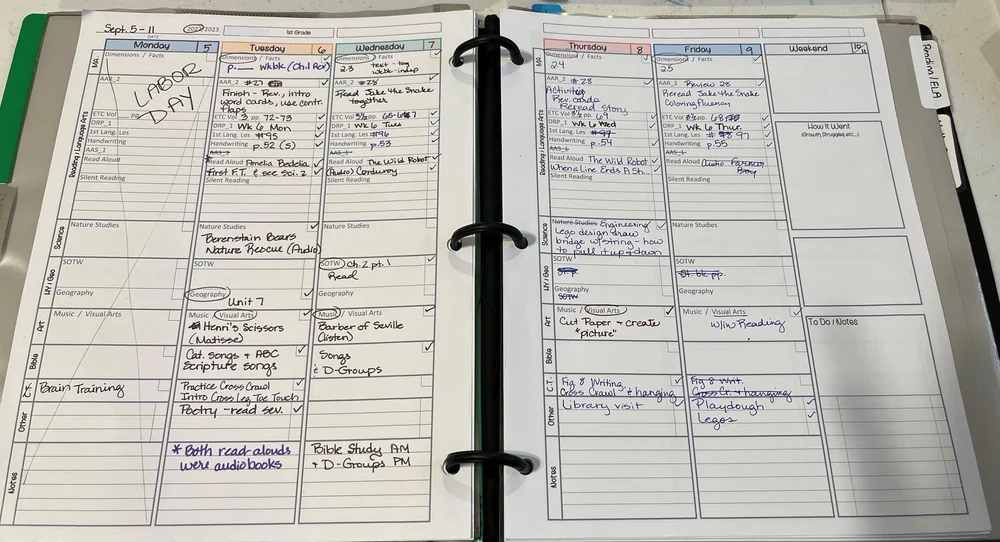 Sept. 5-11
DATES
2022/2023
1st Grade
Monday 5
Tuesday 6
Wednesday 7
MA
Reading / Language Arts
Science
HY/Geo
Art
Bible
C.T.
Other
Notes
LABOR
DAY
ETC Vol
pp.
DRP_1
1st Lang. Les
Handwriting
AAS_1
Read Aloud
Silent Reading
Nature Studies
SOTW
Geography
Music / Visual Arts
Brain Training
Dimensions / Facts
Wkbk (Ch.1 Rev)
AAR_2 #27
Finish - Rev., intro
word cards, use contr.
flaps
ETC Vol 3 pp. 72-73
DRP_1 Wk 6 Mon
1st Lang. Les #95
Handwriting p.52 (S)
AAS_1
* Read Aloud Amelia Bedelia
First F.T. & see Sci. 2
Silent Reading
Nature Studies
Berenstain Bears
Nature Rescue (Audio)
SOTW
Geography
Unit 7
Music / Visual Arts
Henri's Scissors
(Matisse)
Cat. Songs + ABC
Scripture songs
Practice Cross Crawl
Intro Cross Leg Toe Touch
Poetry - read sev.
* Both read-alouds
were audiobooks
Dimensions / Facts
2.3 text - tog
wkbk - indep
AAR_2 #28
Read Jake the Snake
together
DRP_1 Wk 6 Tues
1st Lang. Les #96
Handwriting p.53
Read Aloud The Wild Robot
(Audio) Corduroy
Silent Reading
Nature Studies
SOTW Ch.2 pt.1
Read
Geography
Music / Visual Arts
Barber of Seville
(listen)
Songs
& D-Groups
Bible Study AM
+ D-Groups PM
Thursday 8
Friday 9
Weekend 10/11
MA
Reading / Language Arts
Science
HY/Geo
Art
Bible
C.T.
Other
Notes
Dimensions / Facts
2.4
AAR_2 #28
Activity
Rev. cards
Reread Story
DRP_1 Wk 6 Wed
1st Lang. Les #97
Handwriting p.54
AAS_1
Read Aloud The Wild Robot
When a Line Ends A Sh...
Silent Reading
Nature Studies Engineering
Lego design draw
bridge w/string - how
to pull it up + down
SOTW
Geography
SOTW
Music / Visual Arts
Cut Paper + create
"picture"
Fig 8 Writing
Cross Crawl & hanging
Library visit
Dimensions / Facts
2.5
AAR_2 Review 28
Reread Jake the Snake
Coloring Fluency
DRP_1 Wk 6 Thur.
1st Lang. Les 97
Handwriting p.55
AAS_1
Read Aloud Audio Farmer
Boy
Silent Reading
Nature Studies
SOTW
Geography
Music / Visual Arts
w/in Reading
Fig 8 Writ.
Cross Cr. + hanging
Playdough
Legos
How It Went
(Growth, Struggles, etc...)
To Do / Notes
Reading / ELA